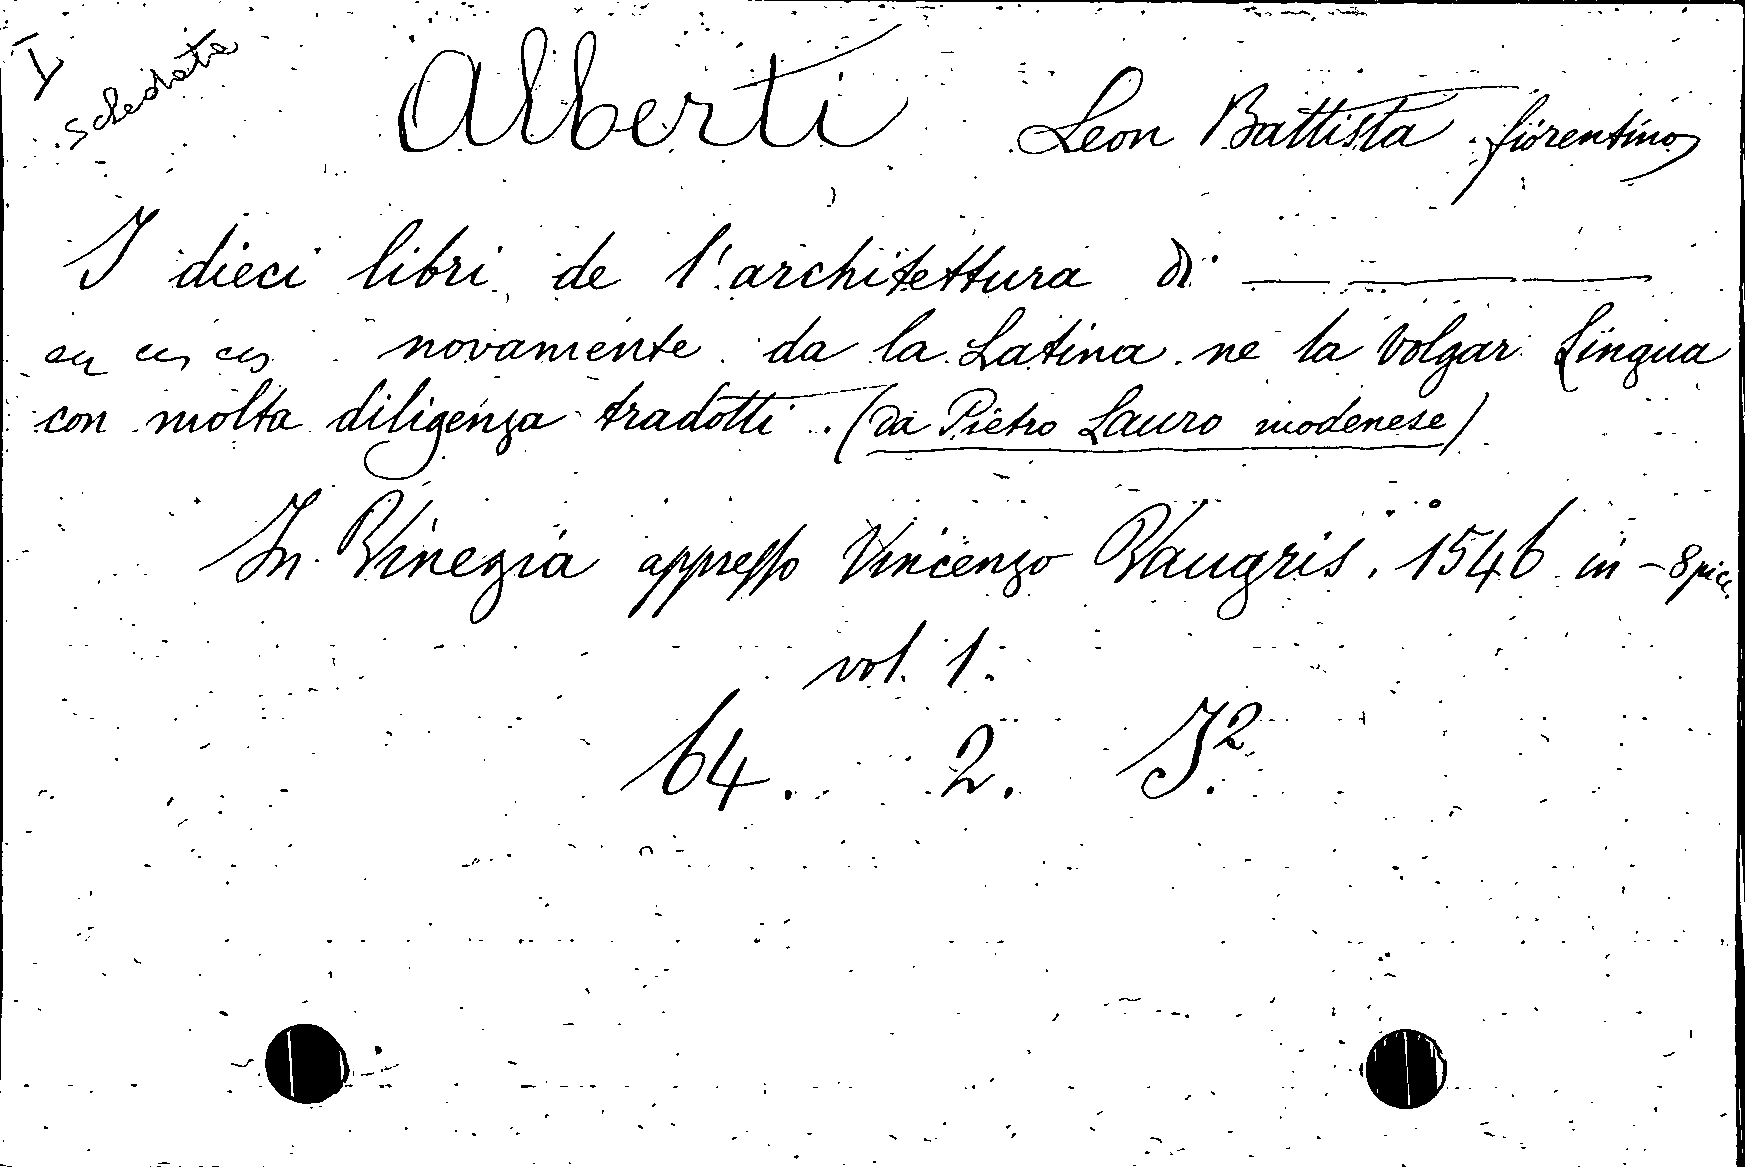 I
schedata
Alberti Leon Battista fiorentino
I dieci libri de l'architettura di ———
novamente da la Latina ne la volgar lingua
con molta diligenza tradotti. (da Pietro Lauro modenese)
In Vinegia appresso Vincenzo Vaugris. 1546 in-8 picc.
vol. 1.
64. 2. J².